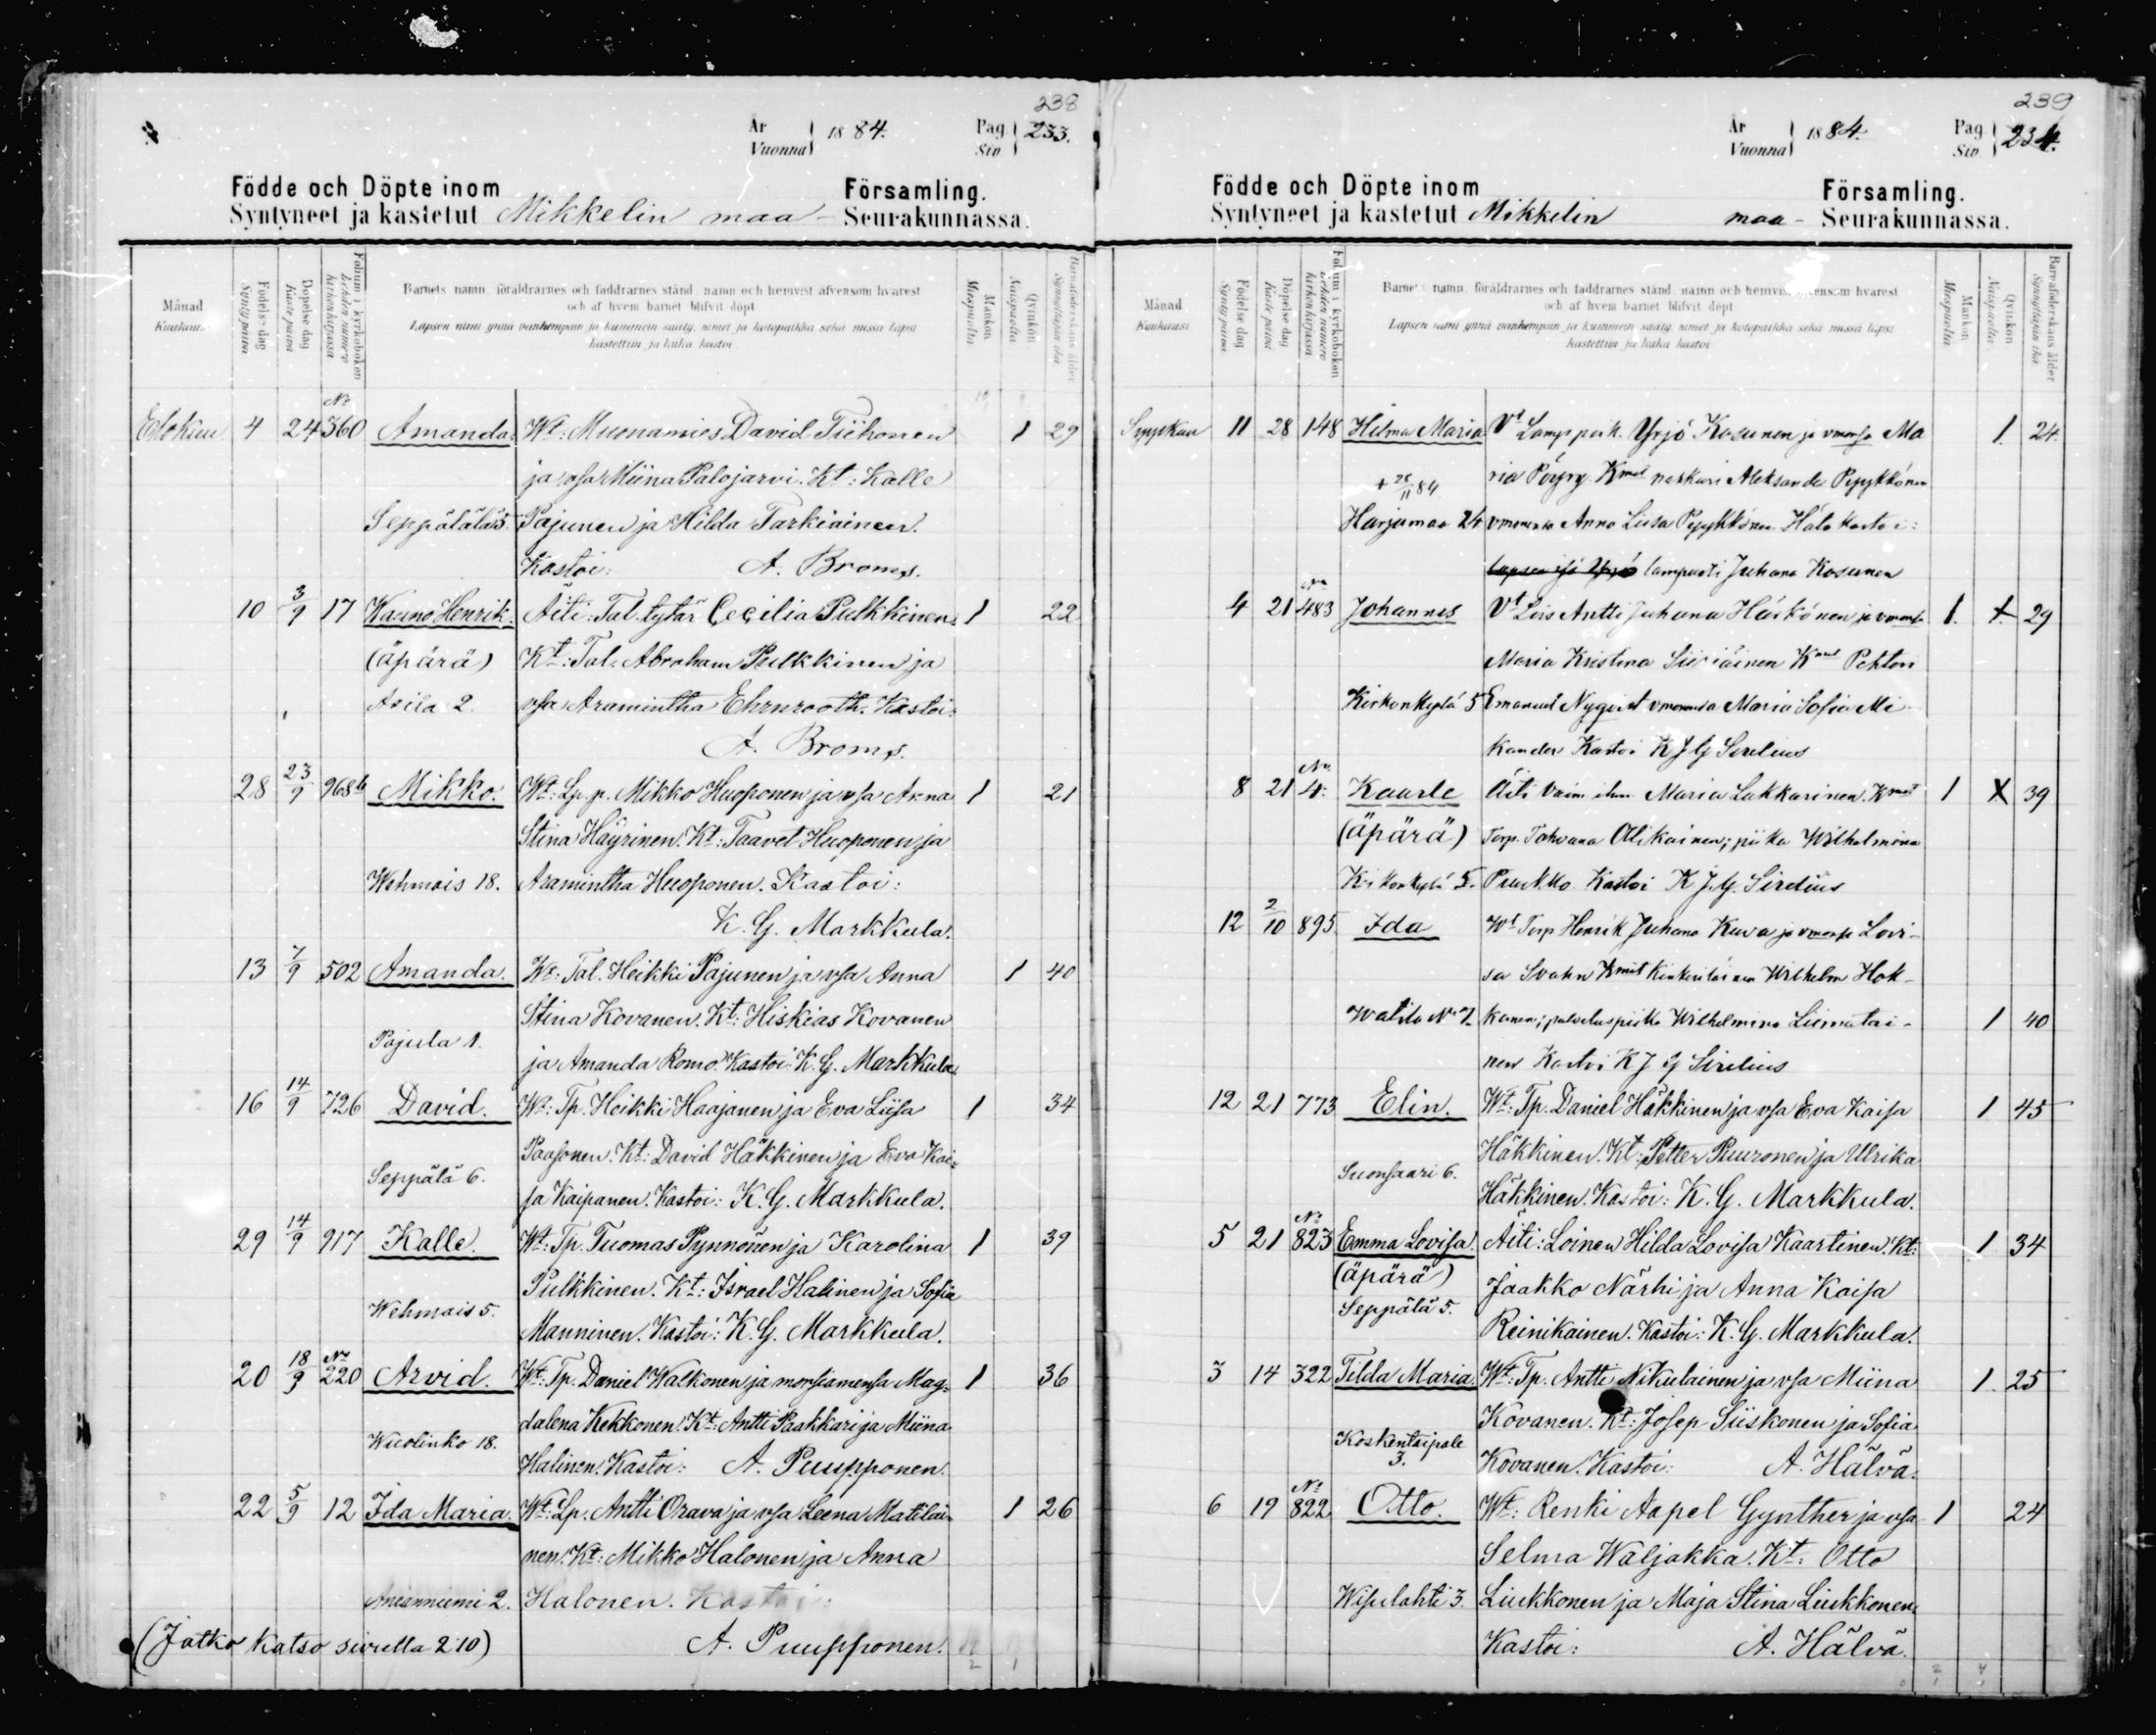 238
År Vuonna 1884. Pag. Siv. 233.
Födde och Döpte inom Församling.
Syntyneet ja kastetut Mikkelin maa- Seurakunnassa.
Månad Kuukausi
Födelse dag Synty päivä
Döpelse dag Kaste päivä
Folium i kyrkoboken Lehden numero kirkonkirjassa
Barnets namn, föräldrarnes och faddrarnes stånd, namn och hemvist äfvensom hvarest
och af hvem barnet blifvit döpt
Lapsen nimi ynnä vanhempain ja kummein sääty, nimet ja kotopaikka sekä missä lapsi
kastettiin ja kuka kastoi
Mankön Miespuolia
Qvinkön Naispuolia
Barnaföderskans ålder Synnyttäjän ikä
Elokuu 4 24 No 360 Amanda. Wt: Muonamies David Tiihonen 1 29
ja vsa Miina Palojarvi. Kt: Kalle
Seppälälä 5. Pajunen ja Hilda Tarkiainen.
Kastoi: A. Broms.
10 3/9 17 Kaino Henrik. Äiti: Tal. tytär Cecilia Pulkkinen. 1 22
(äpärä) Kt: Tal. Abraham Pulkkinen ja
Asila 2. vsa Aramintha Ehrnrooth. Kastoi:
A. Broms.
28 23/9 968b Mikko. Wt: Lp. p. Mikko Huoponen ja vsa Anna 1 21
Stina Häyrinen. Kt: Taavet Huoponen ja
Wehmais 18. Aramintha Huoponen. Kastoi:
K. G. Markkula.
13 7/9 502 Amanda. Wt: Tal. Heikki Pajunen ja vsa Anna 1 40
Stina Kovanen. Kt: Hiskias Kovanen
Pajula 1. ja Amanda Romo. Kastoi: K. G. Markkula.
16 14/9 726 David. Wt: Tp. Heikki Haajanen ja Eva Liisa 1 34
Paasonen. Kt: David Häkkinen ja Eva Kai-
Seppälä 6. sa Kaipanen. Kastoi: K. G. Markkula.
29 14/9 917 Kalle. Wt: Tp. Tuomas Pynnönen ja Karolina 1 39
Pulkkinen. Kt: Israel Halinen ja Sofia
Wehmais 5. Manninen. Kastoi: K. G. Markkula.
20 18/9 No 220 Arvid. Wt: Tp. Daniel Walkonen ja morsiamensa Mag- 1 36
dalena Kekkonen. Kt: Antti Paakkari ja Miina
Wuolinko 18. Halinen. Kastoi: A. Puupponen.
22 5/9 12 Ida Maria. Wt: Lp. Antti Orava ja vsa Leena Matilai- 1 26
nen. Kt: Mikko Halonen ja Anna
Anianniemi 2. Halonen. Kastoi:
(Jatko katso sivulla 210) A. Puupponen.
239
År Vuonna 1884. Pag. Siv. 234.
Födde och Döpte inom Församling.
Syntyneet ja kastetut Mikkelin maa- Seurakunnassa.
Månad Kuukausi
Födelse dag Synty päivä
Döpelse dag Kaste päivä
Folium i kyrkoboken Lehden numero kirkonkirjassa
Barnets namn, föräldrarnes och faddrarnes stånd, namn och hemvist äfvensom hvarest
och af hvem barnet blifvit döpt
Lapsen nimi ynnä vanhempain ja kummein sääty, nimet ja kotopaikka sekä missä lapsi
kastettiin ja kuka kastoi
Mankön Miespuolia
Qvinkön Naispuolia
Barnaföderskans ålder Synnyttäjän ikä
Syyskuu 11 28 148 Hilma Maria Vt Lamp Yrjö Kosunen ja vmonsa Ma 1. 24.
+ 84 ria Pöyry Kmit Aleksander Pöyykkönen
Harjumaa 24 Anna Liisa Hätä kastoi:
lapsen isä Yrjö lampuoti Juhana Kosunen
4 21 483 Johannes Vt Lois Antti Juhana Härkönen ja vmonsa 1. 29
Maria Kristina Siiriäinen Kmit Pehtori
Kirkonkylä 5 Emanuel Nygrist Maria Sofia Mi
kander Kastoi K J G Sirelius
8 21 No 4. Kaarle Äiti Maria Lakkarinen. Kmit 1 X 39
(äpärä) Torp. Tahvana Ollikainen; piika Wilhelmina
Kirkonkylä 5. Kastoi K J. G. Sirelius
12 2/10 895 Ida Wt Torp Henrik Juhana Kuva ja vmonsa Lovi-
sa Svahn Kmit Wilhelm Hok-
Watila No 7 kanen; palveluspiika Wilhelmina Liimatai- 1 40
nen Kastoi K J G Sirelius
12 21 773 Elin. Wt: Tp. Daniel Häkkinen ja vsa Eva Kaisa 1 45
Häkkinen. Kt: Petter Puuronen ja Ulrika
Suonsaari 6. Häkkinen. Kastoi: K. G. Markkula.
5 21 No 823 Emma Lovisa. Äiti: Loinen Hilda Lovisa Kaartinen. Kt: 1 34
(äpärä) Jaakko Närhi ja Anna Kaisa
Seppälä 5. Reinikainen. Kastoi: K. G. Markkula.
3 14 322 Tilda Maria Wt: Tp. Antti Nikulainen ja vsa Miina 1 25
Kovanen. Kt: Josep Siiskonen ja Sofia
Koskentaipale 3. Kovanen. Kastoi: A. Hälvä.
6 19 No 822 Otto. Wt: Renki Aapel Gynther ja vsa 1 24
Selma Waljakka. Kt: Otto
Wisulahti 3. Liukkonen ja Maja Stina Liukkonen.
Kastoi: A. Hälvä.